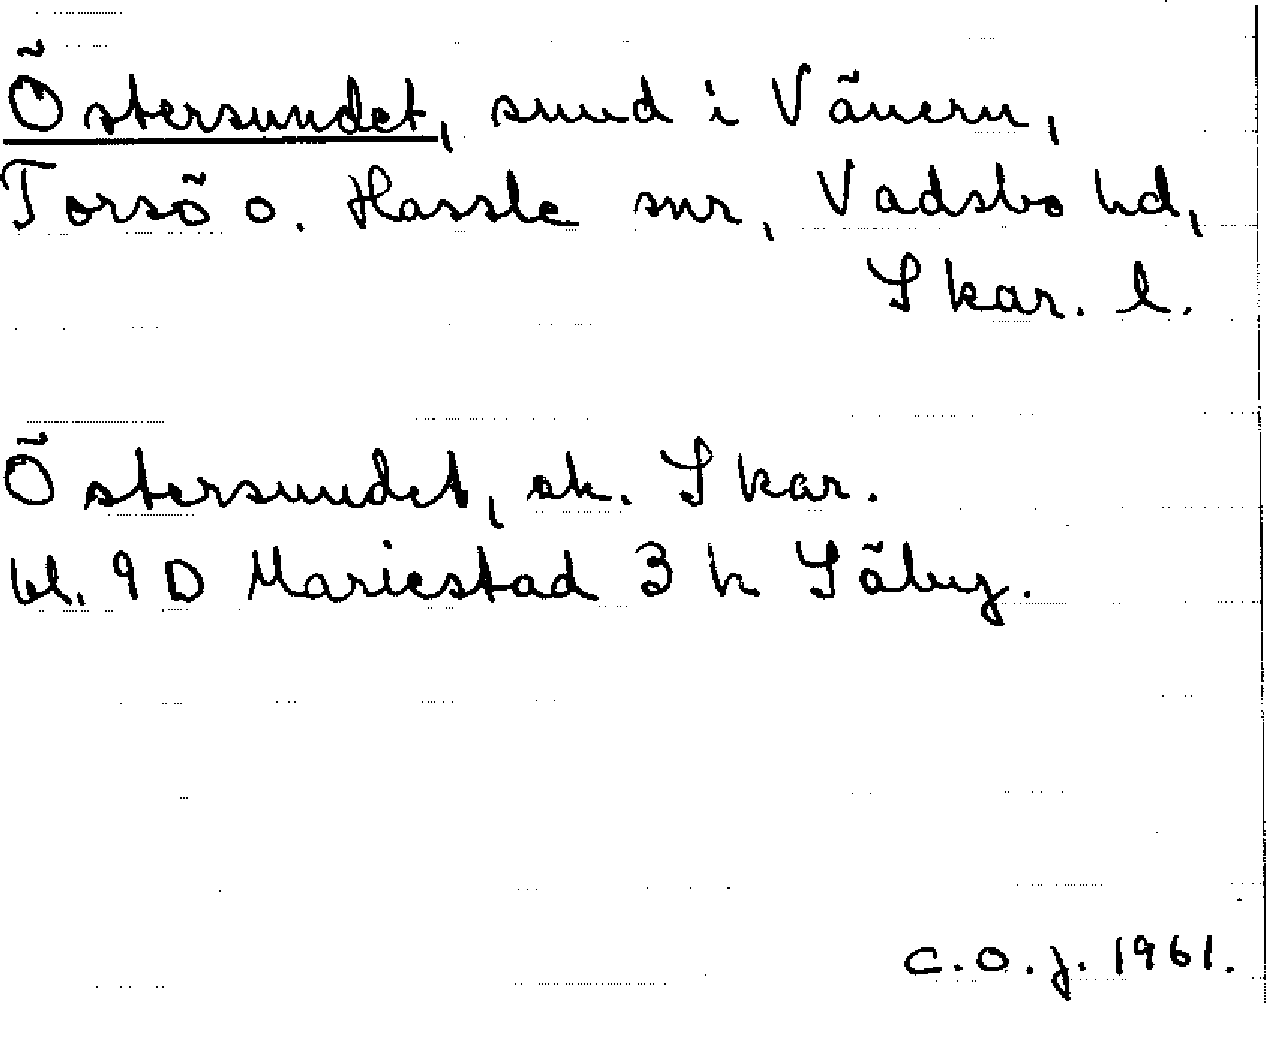 Östersundet, sund i Vänern,
Torsö o. Hassle snr, Vadsbo hd,
Skar. l.
Östersundet, ek. Skar.
bl. 9 D Mariestad 3 h Säby.
C.O.J. 1961.